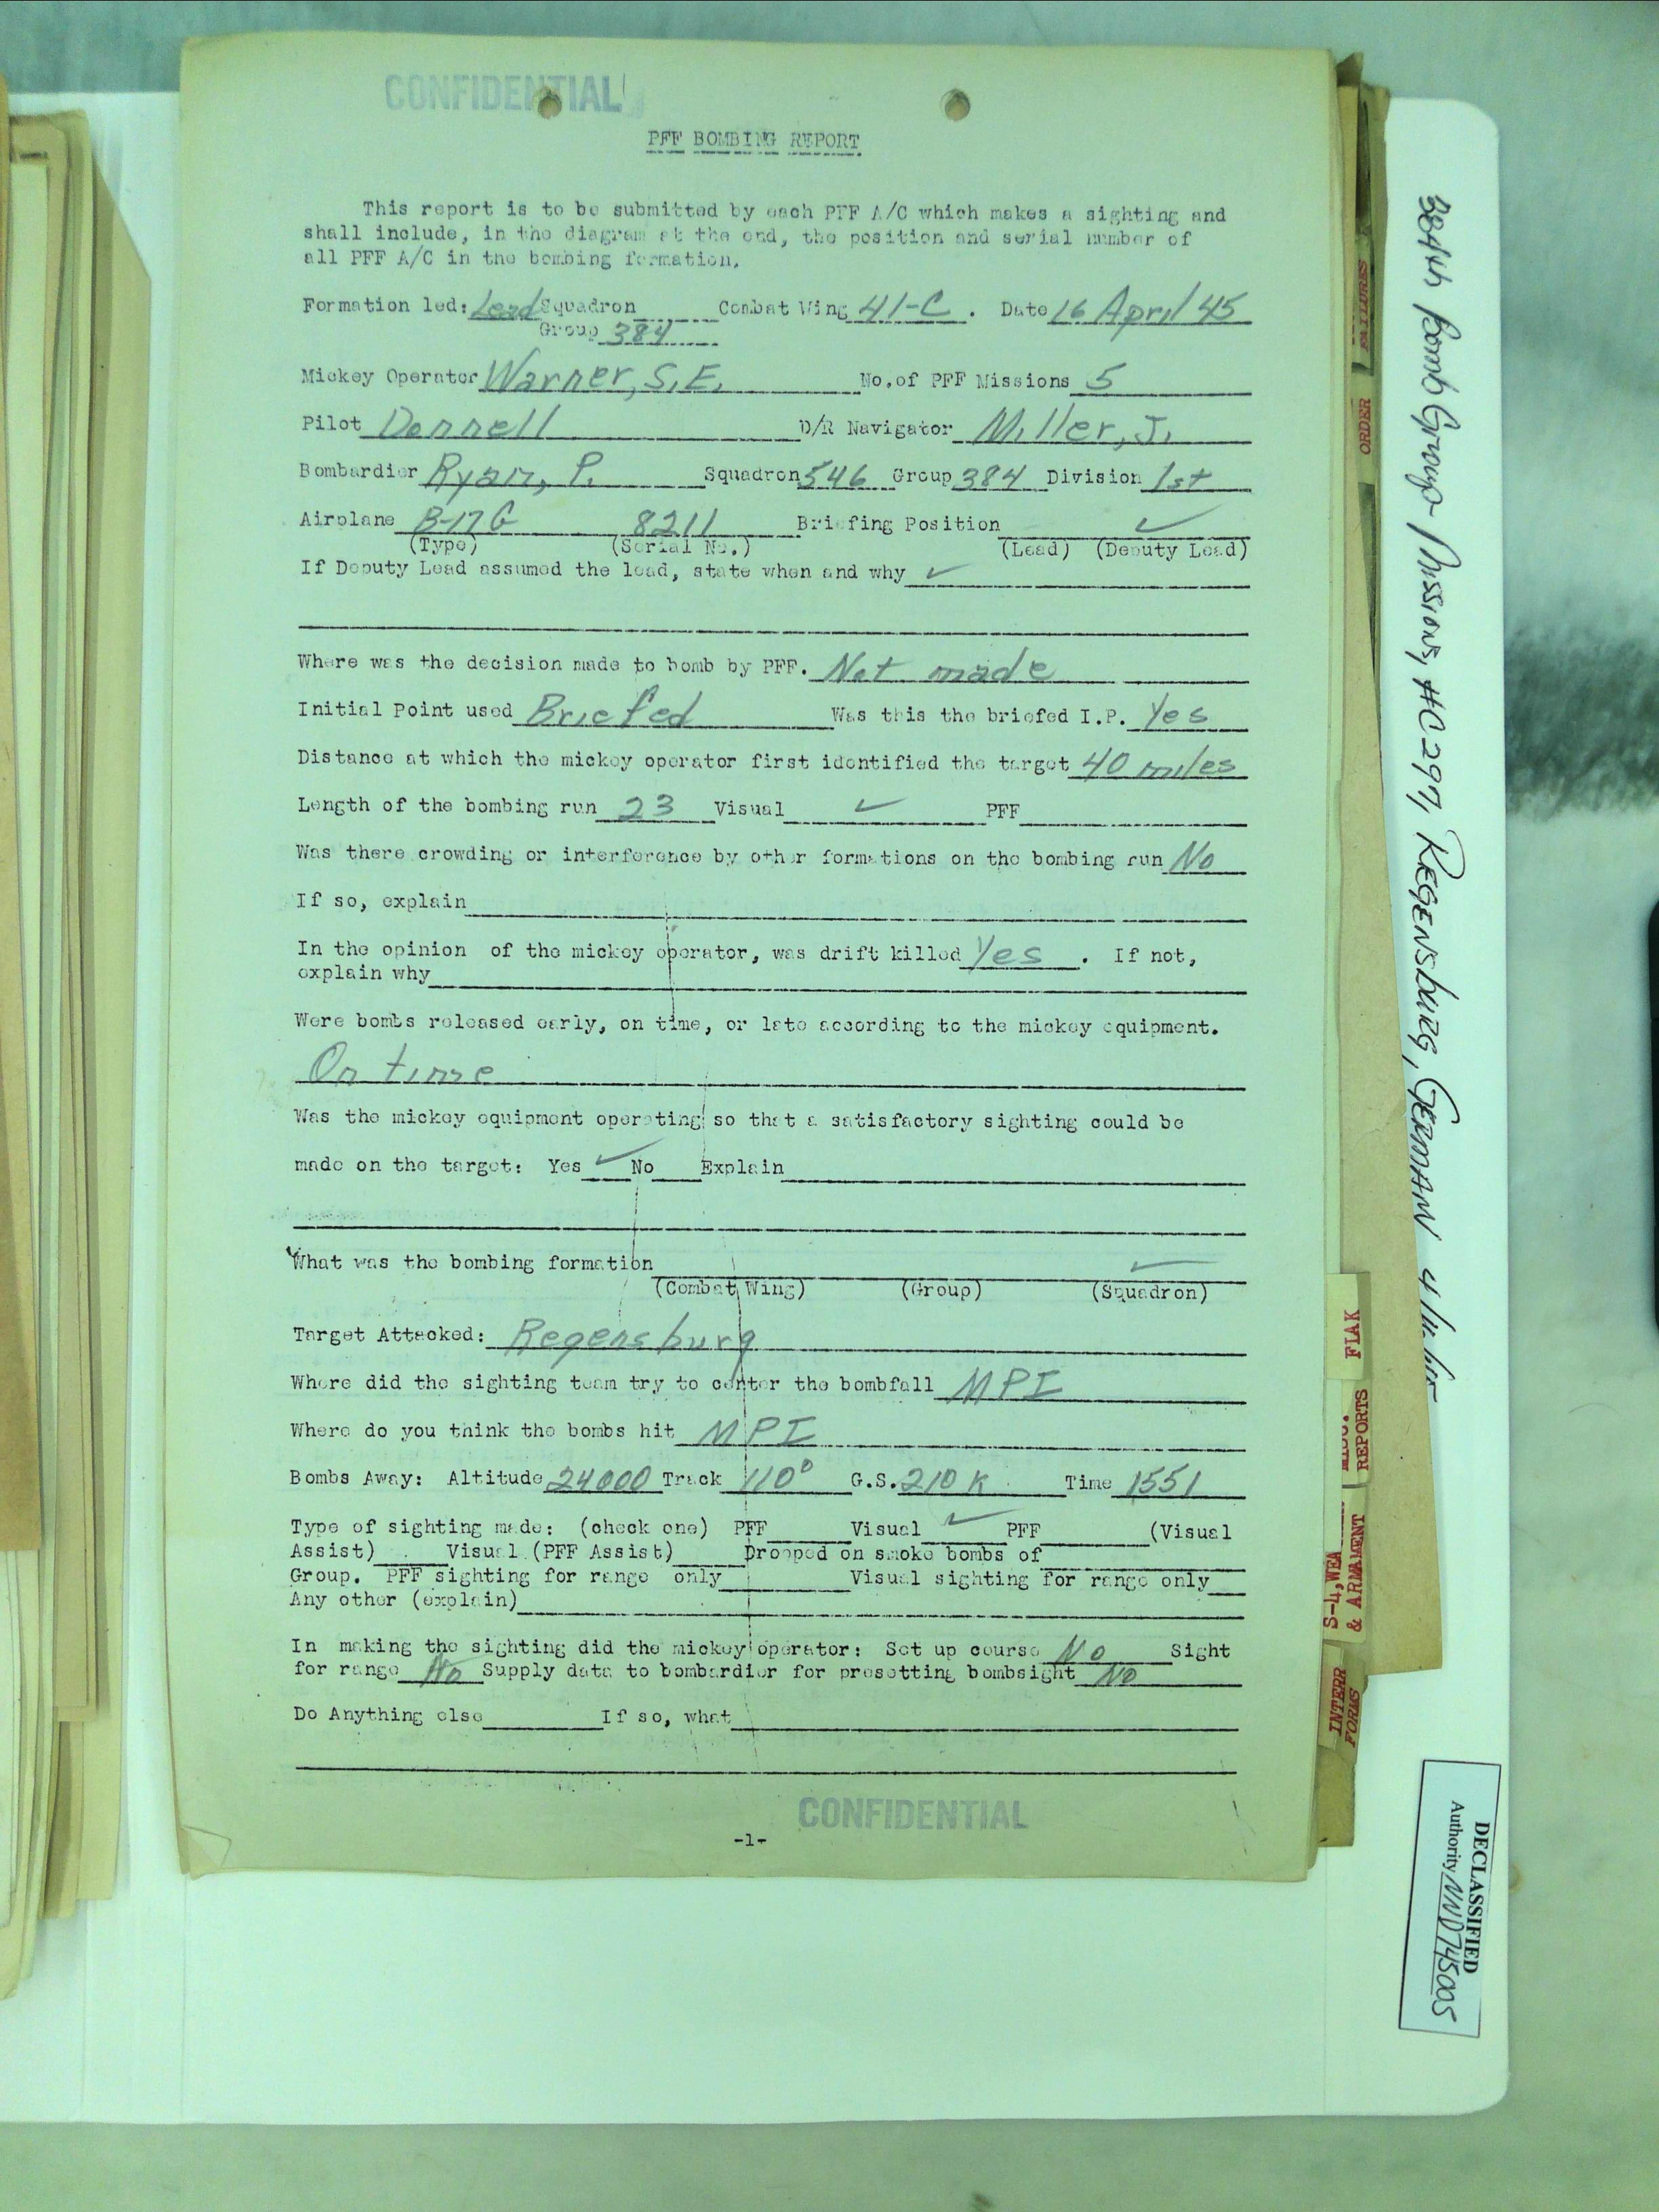 CONFIDENTIAL
PFF BOMBING REPORT
This report is to be submitted by each PFF A/C which makes a sighting and
shall include, in the diagram at the end, the position and serial number of
all PFF A/C in the bombing formation.
Formation led: Lead Squadron Combat Wing 41-C . Date 16 April 45
Group 384
Mickey Operator Warner, S.E. No. of PFF Missions 5
Pilot Donnell D/R Navigator Miller, J.
Bombardier Ryan, P. Squadron 546 Group 384 Division 1st
Airplane B-17G 8211 Briefing Position ✓
(Type) (Serial No.) (Lead) (Deputy Lead)
If Deputy Lead assumed the lead, state when and why ✓
Where was the decision made to bomb by PFF. Not made
Initial Point used Briefed Was this the briefed I.P. Yes
Distance at which the mickey operator first identified the target 40 miles
Length of the bombing run 23 Visual ✓ PFF
Was there crowding or interference by other formations on the bombing run No
If so, explain
In the opinion of the mickey operator, was drift killed Yes . If not,
explain why
Were bombs released early, on time, or late according to the mickey equipment.
On time
Was the mickey equipment operating so that a satisfactory sighting could be
made on the target: Yes ✓ No Explain
What was the bombing formation ✓
(Combat Wing) (Group) (Squadron)
Target Attacked: Regensburg
Where did the sighting team try to center the bombfall MPI
Where do you think the bombs hit MPI
Bombs Away: Altitude 24000 Track 110° G.S. 210 K Time 1551
Type of sighting made: (check one) PFF Visual ✓ PFF (Visual
Assist) Visual (PFF Assist) Dropped on smoke bombs of
Group. PFF sighting for range only Visual sighting for range only
Any other (explain)
In making the sighting did the mickey operator: Set up course No Sight
for range No Supply data to bombardier for presetting bombsight No
Do Anything else If so, what
CONFIDENTIAL
-1-
384th Bomb Group Missions, #C297, REGENSBURG, GERMAN
FAILURES
ORDER
FLAK
REPORTS
S-4, WEA
& ARMAMENT
INTERR
FORMS
DECLASSIFIED
Authority NND745005